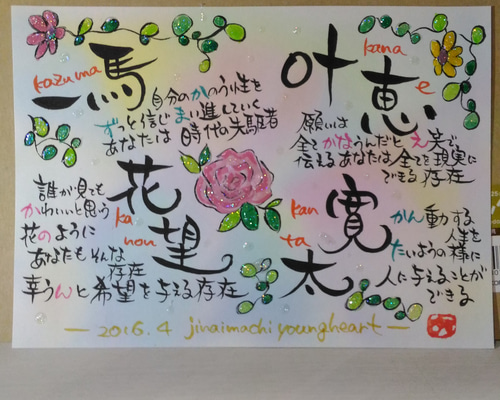 一馬
kazuma
自分のかのう小生を
ずっと信じまい進していく
あなたは 時代の先駆者
叶恵
kana
e
願いは
全てかなうんだとえ笑で
伝えるあなたは全てを現実に
できる存在
花望
ka
non
誰が見ても
かわいいと思う
花のように
あなたもそんな
存在
幸うんと希望を与える存在
寛太
kan
ta
かん動する
人生を
たいようの様に
人に与えることが
できる
－2016.4 jinaimachi youngheart－